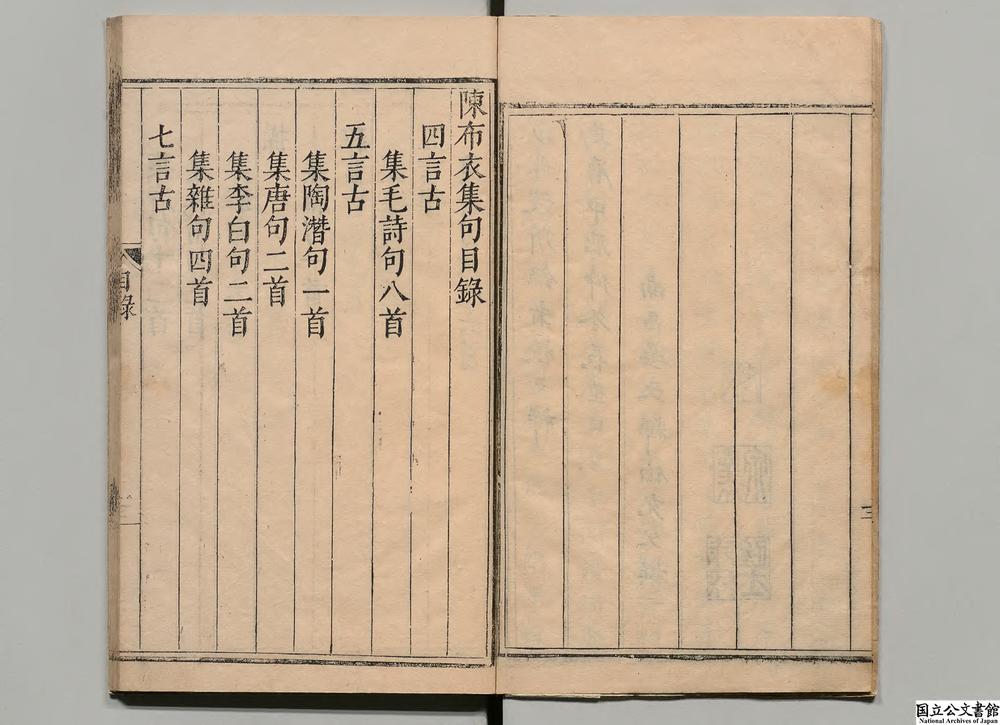 陳布衣集句目錄
四言古
集毛詩句八首
五言古
集陶潛句一首
集唐句二首
集李白句二首
集雜句四首
七言古
目錄
一
三
国立公文書館
National Archives of Japan